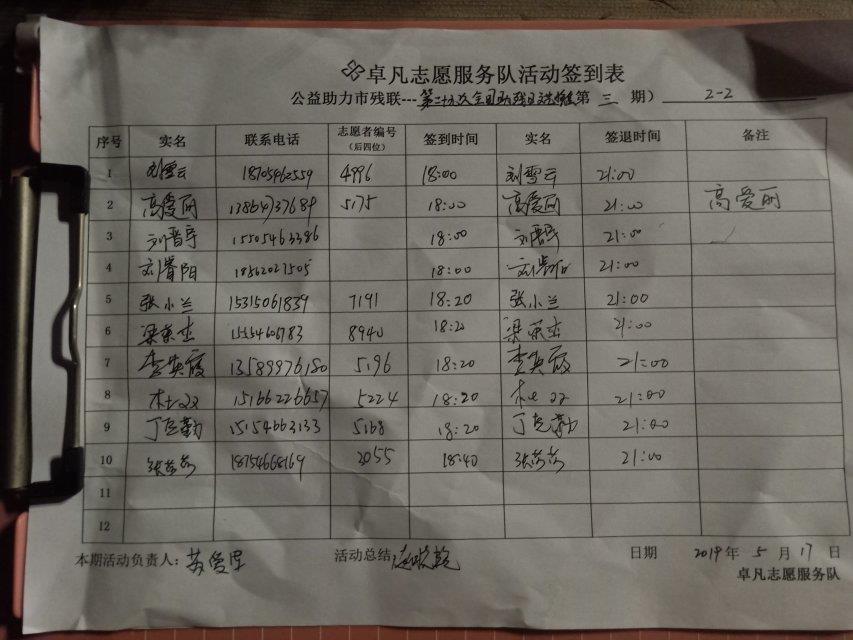 卓凡志愿服务队活动签到表
公益助力市残联---第二十九次全国助残日 第三期） 2-2
序号 实名 联系电话 志愿者编号（后四位） 签到时间 实名 签退时间 备注
1 刘雪云 18705462559 4996 18:00 刘雪云 21:00
2 高爱丽 13864737689 5175 18:00 高爱丽 21:00 高爱丽
3 刘晋宇 15505463386 18:00 刘晋宇 21:00
4 18562027505 18:00 21:00
5 张小兰 15315061839 7191 18:20 张小兰 21:00
6 15554606783 8940 18:20 21:00
7 李英霞 13589976180 5196 18:20 李英霞 21:00
8 杜双双 15166226657 5224 18:20 杜双双 21:00
9 15154663133 5168 18:20 21:00
10 18754668169 2055 18:40 21:00
11
12
本期活动负责人： 活动总结 日期 2019年 5月 17日
卓凡志愿服务队